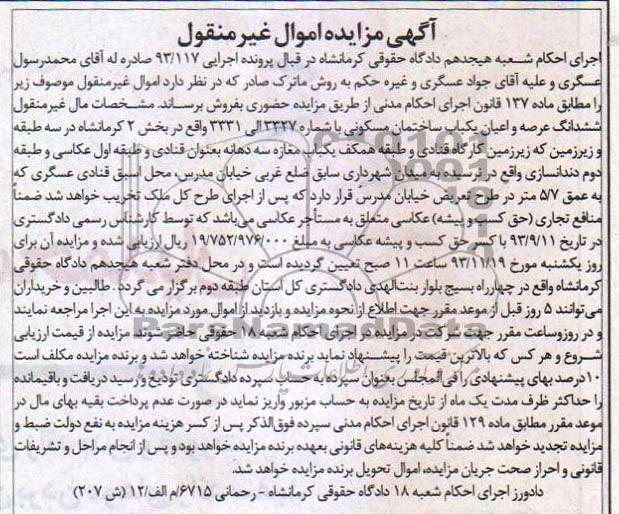 آگهی مزایده اموال غیر منقول
اجرای احکام شعبه هیجدهم دادگاه حقوقی کرمانشاه در قبال پرونده اجرایی ۹۳/۱۱۷ صادره له آقای محمدرسول
عسگری و علیه آقای جواد عسگری و غیره حکم به روش ماترک صادر که در نظر دارد اموال غیرمنقول موصوف زیر
را مطابق ماده ۱۳۷ قانون اجرای احکام مدنی از طریق مزایده حضوری بفروش برساند. مشخصات مال غیرمنقول
ششدانگ عرصه و اعیان یکباب ساختمان مسکونی با شماره ۳۳۲۷ الی ۳۳۳۱ واقع در بخش ۲ کرمانشاه در سه طبقه
و زیرزمین که زیرزمین کارگاه قنادی و طبقه همکف یکباب مغازه سه دهانه بعنوان قنادی و طبقه اول عکاسی و طبقه
دوم دندانسازی واقع در نرسیده به میدان شهرداری سابق ضلع غربی خیابان مدرس، محل اسبق قنادی عسگری که
به عمق ۵/۷ متر در طرح تعریض خیابان مدرس قرار دارد که پس از اجرای طرح کل ملک تخریب خواهد شد ضمناً
منافع تجاری (حق کسب و پیشه) عکاسی متعلق به مستأجر عکاسی می‌باشد که توسط کارشناس رسمی دادگستری
در تاریخ ۹۳/۹/۱۱ با کسر حق کسب و پیشه عکاسی به مبلغ ۱۹/۷۵۲/۹۷۶/۰۰۰ ریال ارزیابی شده و مزایده آن برای
روز یکشنبه مورخ ۹۳/۱۱/۱۹ ساعت ۱۱ صبح تعیین گردیده است و در محل دفتر شعبه هیجدهم دادگاه حقوقی
کرمانشاه واقع در چهارراه بسیج بلوار بنت‌الهدی دادگستری کل استان طبقه دوم برگزار می گردد. طالبین و خریداران
می‌توانند ۵ روز قبل از موعد مقرر جهت اطلاع از نحوه مزایده و بازدید از اموال مورد مزایده به این اجرا مراجعه نمایند
و در روز و ساعت مقرر جهت شرکت در مزایده در اجرای احکام شعبه ۱۸ حقوقی حاضر شوند مزایده از قیمت ارزیابی
شروع و هر کس که بالاترین قیمت را پیشنهاد نماید برنده مزایده شناخته خواهد شد و برنده مزایده مکلف است
۱۰ درصد بهای پیشنهادی را فی‌المجلس بعنوان سپرده به حساب سپرده دادگستری تودیع و رسید دریافت و باقیمانده
را حداکثر ظرف مدت یک ماه از تاریخ مزایده به حساب مزبور واریز نماید در صورت عدم پرداخت بقیه بهای مال در
موعد مقرر مطابق ماده ۱۲۹ قانون اجرای احکام مدنی سپرده فوق‌الذکر پس از کسر هزینه مزایده به نفع دولت ضبط و
مزایده تجدید خواهد شد ضمناً کلیه هزینه‌های قانونی بعهده برنده مزایده خواهد بود و پس از انجام مراحل و تشریفات
قانونی و احراز صحت جریان مزایده، اموال تحویل برنده مزایده خواهد شد.
دادورز اجرای احکام شعبه ۱۸ دادگاه حقوقی کرمانشاه - رحمانی ۶۷۱۵/م الف/۱۲ (ش ۲۰۷)
ParsNamadData